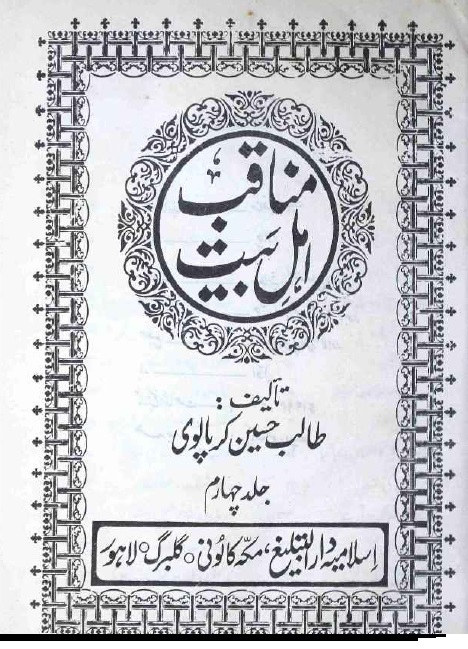 مناقب
اہلِ بیت
تالیف:
طالب حسین کرپالوی
جلد چہارم
اسلامیہ دارالتبلیغ، مکہ کالونی ○ گلبرگ ○ لاہور